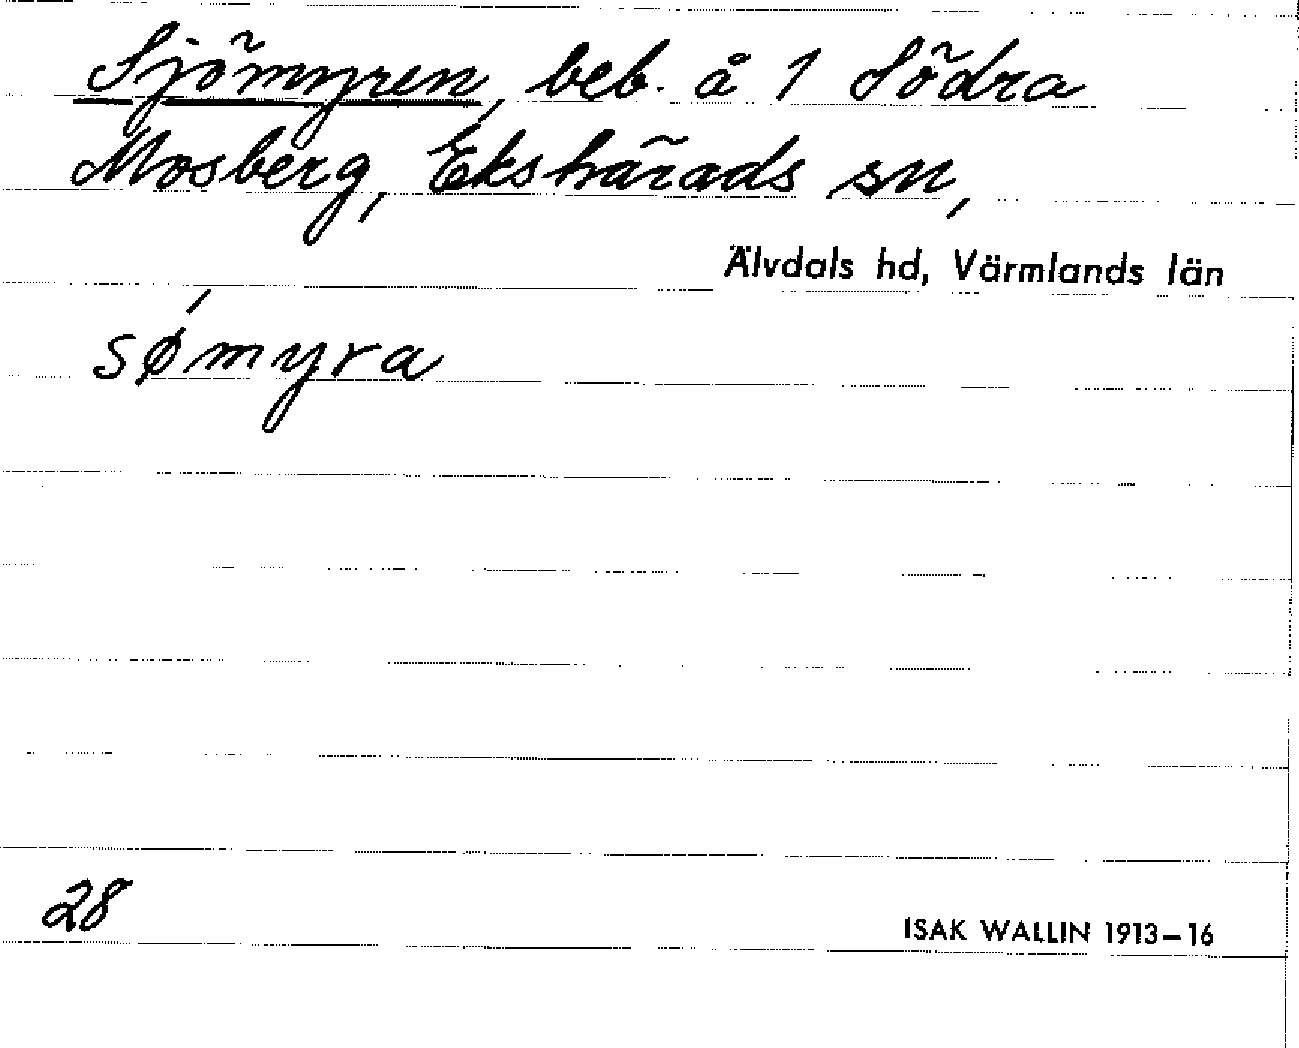 Sjömyren, beb. å 1 Södra
Mosberg, Ekshärads sn,
Älvdals hd, Värmlands län
sǿmyra
28
ISAK WALLIN 1913-16